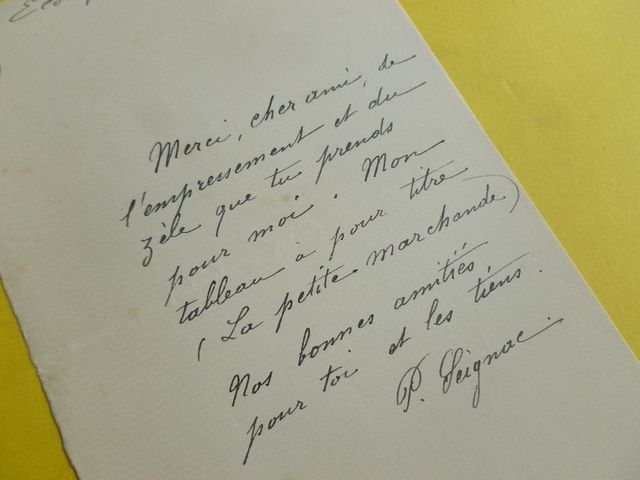 Merci, cher ami, de
l'empressement et du
zèle que tu prends
pour moi. Mon
tableau à pour titre
(La petite marchande)
Nos bonnes amitiés
pour toi et les tiens.
P. Seignac.